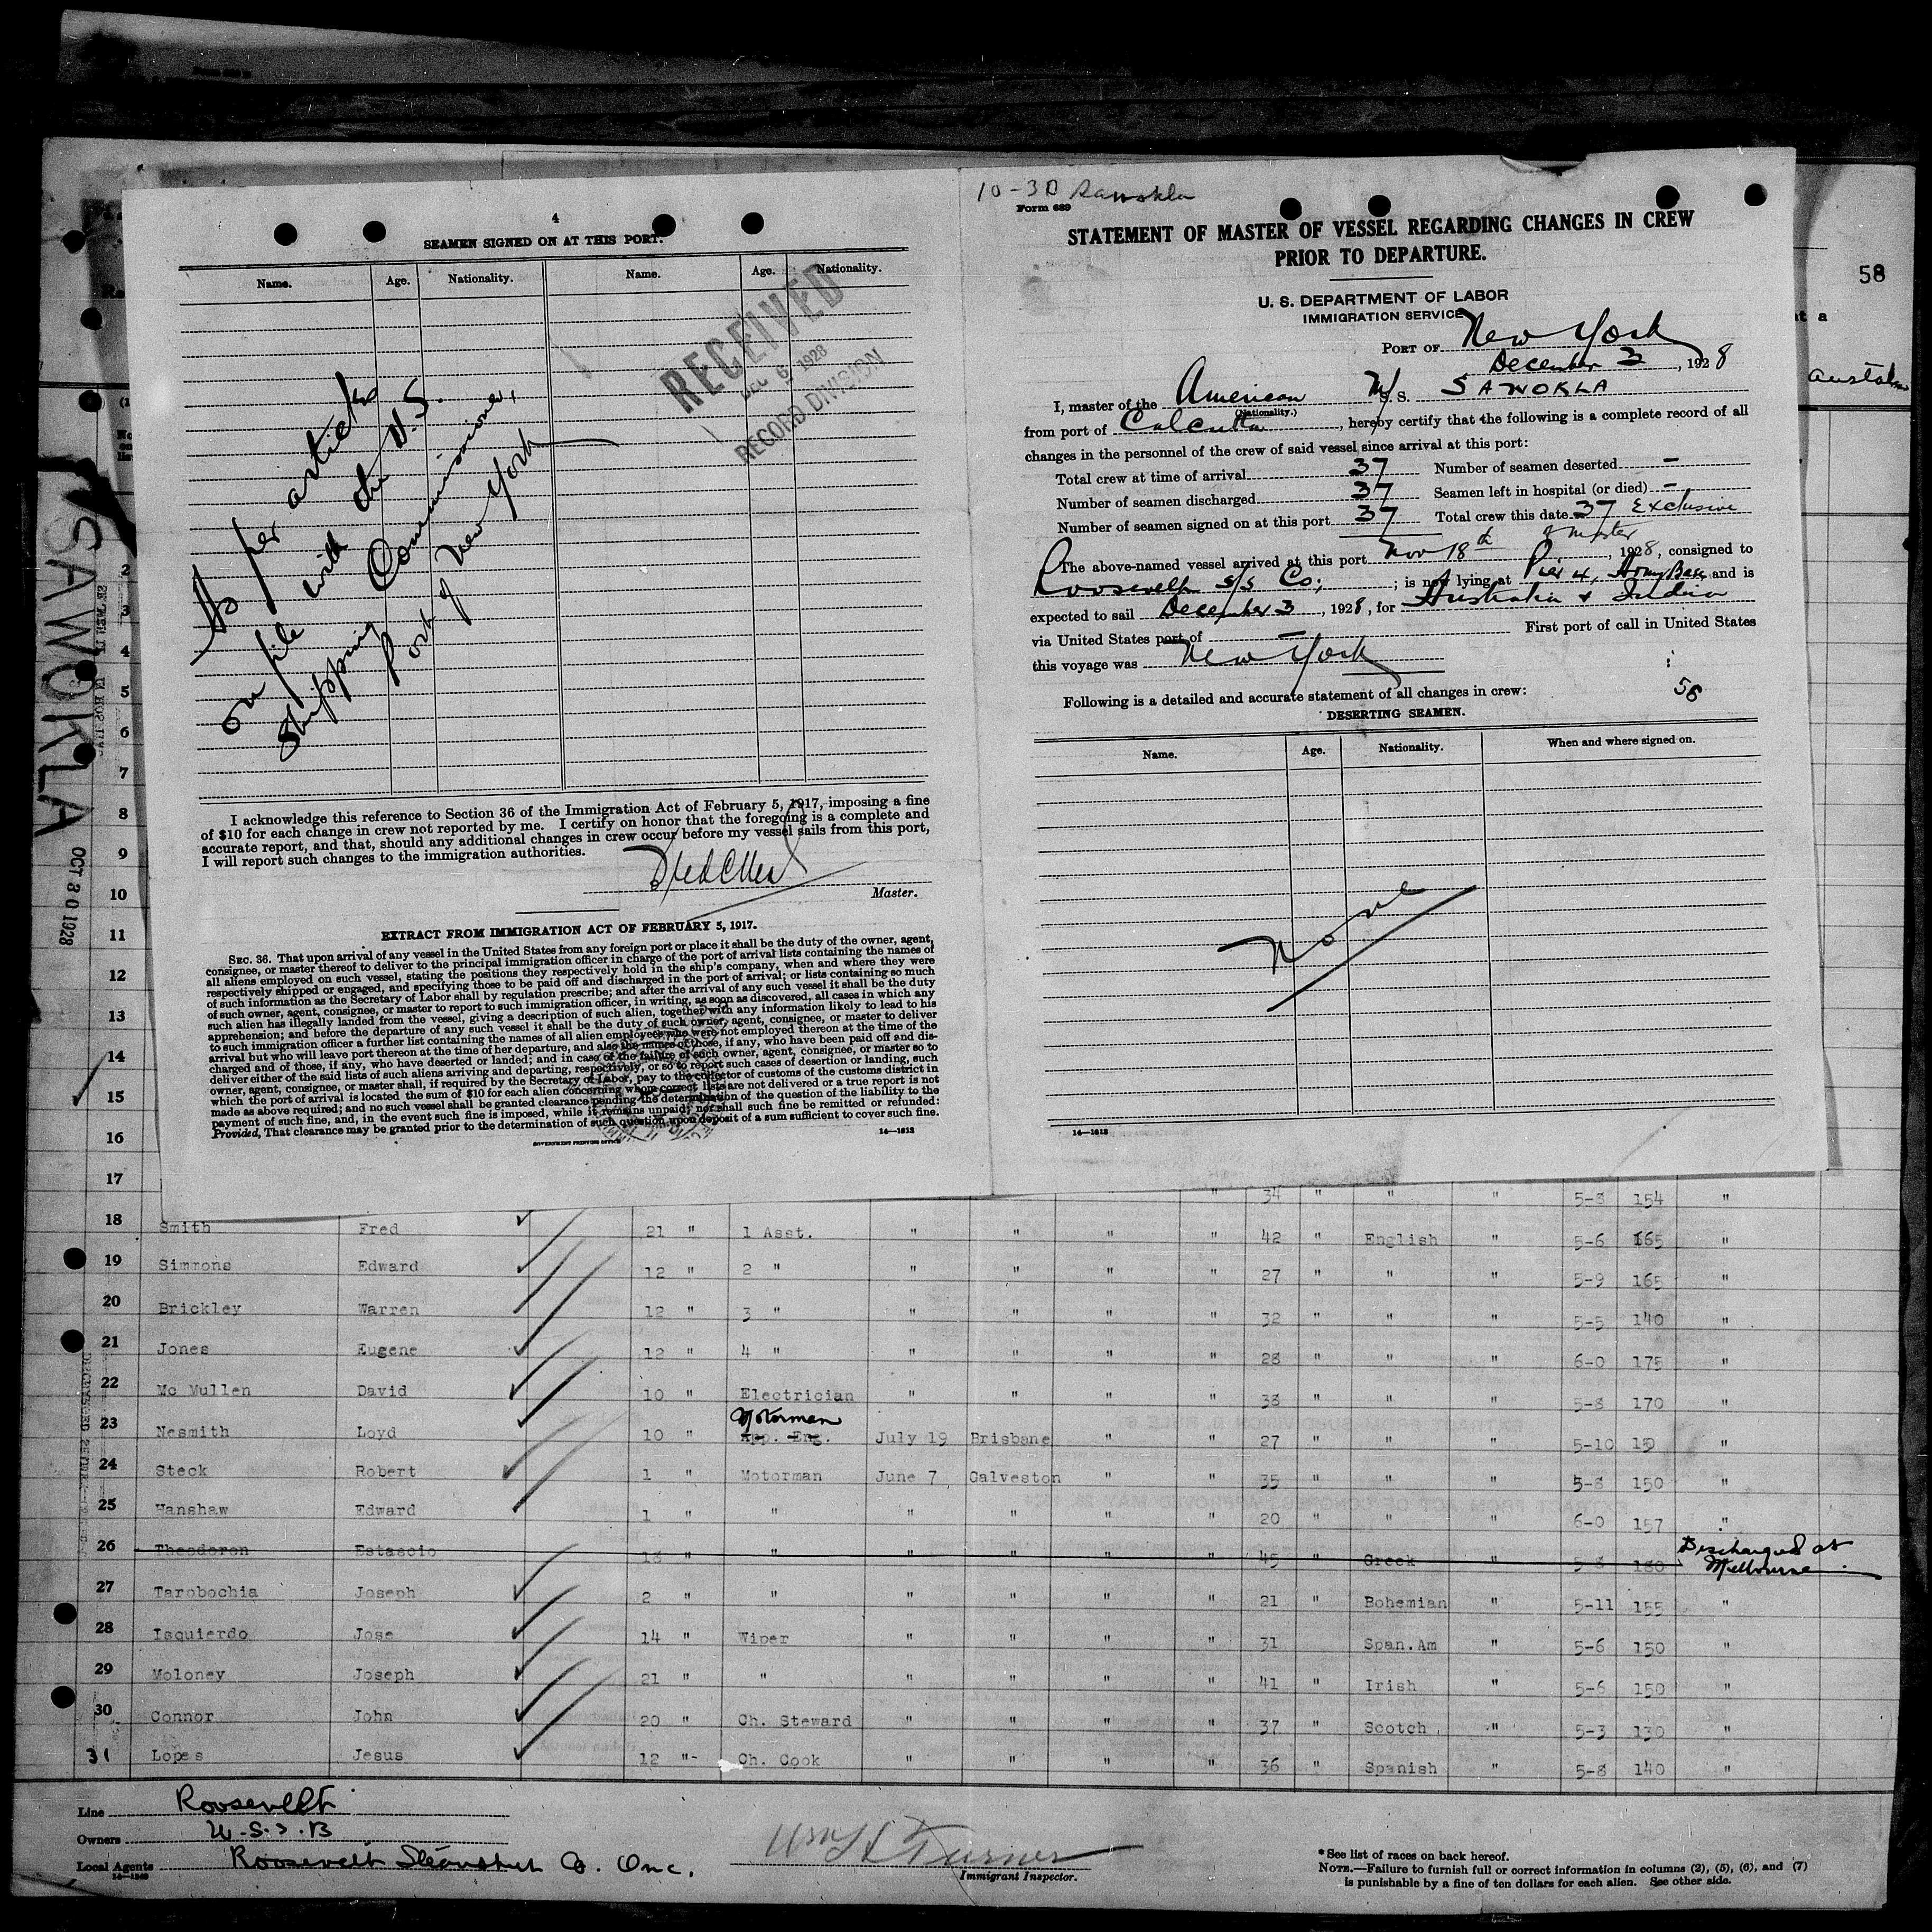 4
SEAMEN SIGNED ON AT THIS PORT.
Name. Age. Nationality. Name. Age. Nationality.
RECEIVED
DEC 6 1928
RECORD DIVISION
As per articles
on file with the U.S.
Shipping Commissioner,
Port of New York
I acknowledge this reference to Section 36 of the Immigration Act of February 5, 1917, imposing a fine
of $10 for each change in crew not reported by me. I certify on honor that the foregoing is a complete and
accurate report, and that, should any additional changes in crew occur before my vessel sails from this port,
I will report such changes to the immigration authorities.
Master.
EXTRACT FROM IMMIGRATION ACT OF FEBRUARY 5, 1917.
SEC. 36. That upon arrival of any vessel in the United States from any foreign port or place it shall be the duty of the owner, agent,
consignee, or master thereof to deliver to the principal immigration officer in charge of the port of arrival lists containing the names of
all aliens employed on such vessel, stating the positions they respectively hold in the ship's company, when and where they were
respectively shipped or engaged, and specifying those to be paid off and discharged in the port of arrival; or lists containing so much
of such information as the Secretary of Labor shall by regulation prescribe; and after the arrival of any such vessel it shall be the duty
of such owner, agent, consignee, or master to report to such immigration officer, in writing, as soon as discovered, all cases in which any
such alien has illegally landed from the vessel, giving a description of such alien, together with any information likely to lead to his
apprehension; and before the departure of any such vessel it shall be the duty of such owner, agent, consignee, or master to deliver
to such immigration officer a further list containing the names of all alien employees who were not employed thereon at the time of the
arrival but who will leave port thereon at the time of her departure, and also the names of those, if any, who have been paid off and dis-
charged and of those, if any, who have deserted or landed; and in case of the failure of such owner, agent, consignee, or master so to
deliver either of the said lists of such aliens arriving and departing, respectively, or so to report such cases of desertion or landing, such
owner, agent, consignee, or master shall, if required by the Secretary of Labor, pay to the collector of customs of the customs district in
which the port of arrival is located the sum of $10 for each alien concerning whom correct lists are not delivered or a true report is not
made as above required; and no such vessel shall be granted clearance pending the determination of the question of the liability to the
payment of such fine, and, in the event such fine is imposed, while it remains unpaid; nor shall such fine be remitted or refunded:
Provided, That clearance may be granted prior to the determination of such question upon deposit of a sum sufficient to cover such fine.
GOVERNMENT PRINTING OFFICE 14—1813
10-30 Sawokla
Form 689
STATEMENT OF MASTER OF VESSEL REGARDING CHANGES IN CREW
PRIOR TO DEPARTURE.
U. S. DEPARTMENT OF LABOR
IMMIGRATION SERVICE
PORT OF New York
December 3, 1928
I, master of the American M/S. S. SAWOKLA
(Nationality.)
from port of Calcutta, hereby certify that the following is a complete record of all
changes in the personnel of the crew of said vessel since arrival at this port:
Total crew at time of arrival 37 Number of seamen deserted —
Number of seamen discharged 37 Seamen left in hospital (or died) —
Number of seamen signed on at this port 37 Total crew this date 37 Exclusive
of master
The above-named vessel arrived at this port Nov 18th, 1928, consigned to
Roosevelt S/S Co; ; is now lying at Pier 4, Army Base and is
expected to sail December 3, 1928, for Australia & India
via United States port of — First port of call in United States
this voyage was New York
56
Following is a detailed and accurate statement of all changes in crew:
DESERTING SEAMEN.
Name. Age. Nationality. When and where signed on.
None
14—1813
58
SAWOKLA
OCT 30 1928
2
3
4
5
6
7
8
9
10
11
12
13
14
15
16
17 " 34 " " " 5-8 154 "
18 Smith Fred 21 " 1 Asst. " " " " 42 " English " 5-6 165 "
19 Simmons Edward 12 " 2 " " " " " 27 " " " 5-9 165 "
20 Brickley Warren 12 " 3 " " " " " 32 " " " 5-5 140 "
21 Jones Eugene 12 " 4 " " " " " 28 " " " 6-0 175 "
22 Mc Mullen David 10 " Electrician " " " " 38 " " " 5-8 170 "
Motorman
23 Nesmith Loyd 10 " App. Eng. July 19 Brisbane " " 27 " " " 5-10 "
24 Steck Robert 1 " Motorman June 7 Galveston " " 35 " " " 5-8 150 "
25 Hanshaw Edward 1 " " " " " " 20 " " " 6-0 157 "
26 Theodoron Estascio 18 " " " " " " 45 " Greek " 5-8 180 Discharged at
Melbourne
27 Tarobochia Joseph 2 " " " " " " 21 " Bohemian " 5-11 155 "
28 Isquierdo Jose 14 " Wiper " " " " 31 Span.Am " 5-6 150 "
29 Moloney Joseph 21 " " " " " " 41 " Irish " 5-6 150 "
30 Connor John 20 " Ch. Steward " " " " 37 " Scotch " 5-3 130 "
31 Lopes Jesus 12 "- Ch. Cook " " " " 36 " Spanish " 5-8 140 "
Line Roosevelt
Owners U.S.S.B
Local Agents Roosevelt Steamship Co. Inc.
Wm H Turner
Immigrant Inspector.
* See list of races on back hereof.
NOTE.—Failure to furnish full or correct information in columns (2), (5), (6), and (7)
is punishable by a fine of ten dollars for each alien. See other side.